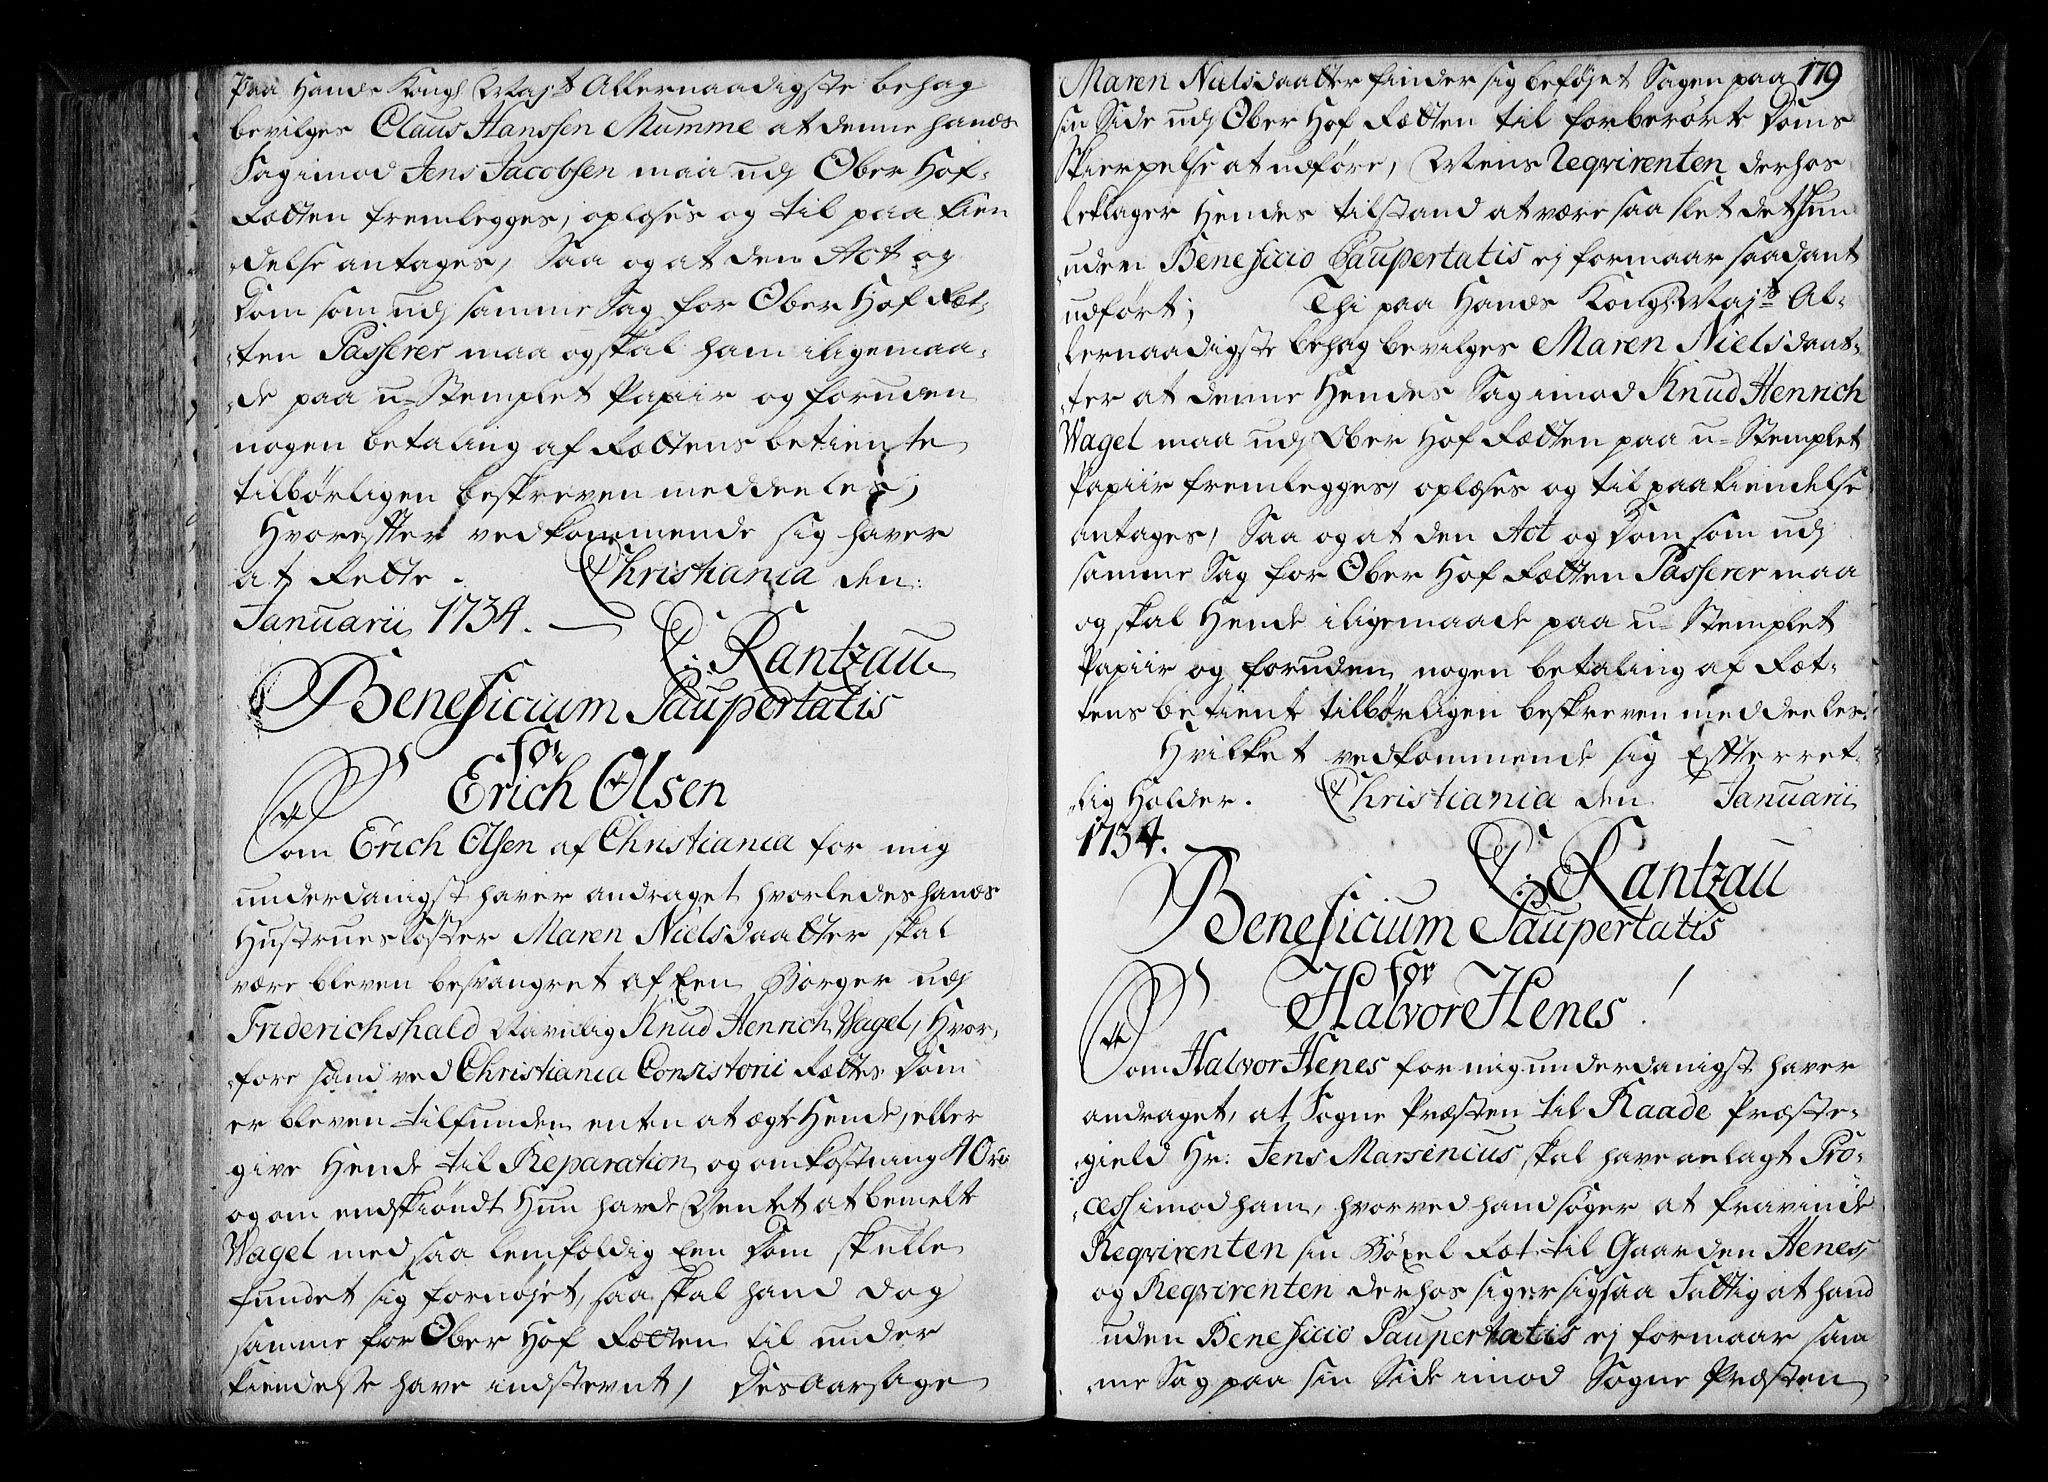 Paa Hands Kongl Mayts Allernaadigste behag
bevilges Claus Hanssen Mumme at denne hands
Sag imod Jens Jacobsen maa udj Ober Hof-
Rætten fremlegges, oplæses og til paa kien
delse antages, Saa og at den Act og
Dom som udj samme Sag for Ober Hof Ræt-
ten Passerer maa og skal ham iligemaa-
de paa u-Stemplet Papiir og foruden
nogen betaling af Rettens betiente
tilbørligen beskreven meddeeles;
Hvorefter vedkommende sig haver
at Rette. Christiania den
Januarii 1734.
C: Rantzau
Beneficium Paupertatis
for
Erich Olsen
Som Erich Olsen af Christiania for mig
underdanigst haver andraget hvorledes hands
Hustrues Søster Maren Nielsdaatter skal
være bleven besvangret af Een Borger udj
Friderichshald Navnlig Knud Henrich Wagel, Hvor-
fore hand ved Christiania Consistorii Rættes Dom
er bleven tilfunden enten at ægte Hende, eller
give Hende til Reparation og omkostning 40 rd
og om endskiøndt Hun havde Ventet at bemelte
Wagel med saa lemfoldig Een Dom skulle
fundet sig fornøjet, saa skal hand dog
samme for Ober Hof Rætten til under
kiendelse have indstevnt, Desaarsage
Maren Nielsdaatter finder sig beføjet Sagen paa 179
sin Side udj Ober Hof Rætten til forberørte Doms
Skierpelse at udføre, Mens Reqvirenten derhos
beklager Hendes tilstand at være saa slet det Hun
uden Beneficio Paupertatis ej formaar saadant
udført; Thi paa Hands Kongl: Mayts Al-
lernaadigste behag bevilges Maren Nielsdaat-
ter at denne Hendes Sag imod Knud Henrich
Wagel maa udj Ober Hof Rætten paa u-Stemplet
Papiir fremlegges, oplæses og til paakiendelse
antages, Saa og at den Act og Dom som udj
samme Sag for Ober Hof Rætten Passerer maa
og skal Hende iligemaade paa u-Stemplet
Papiir og foruden nogen betaling af Ræt-
tens betiente tilbørligen beskreven meddeeles.
Hvilket vedkommende sig Efterret-
lig Holder. Christiania den Januarii
1734.
C: Rantzau
Beneficium Paupertatis
for
Halvor Henes
Som Halvor Henes for mig underdanigst haver
andraget, at Sogne Præsten til Raade Præste-
gield Hr: Jens Marsenius skal have anlagt Pro-
cess imod ham, hvorved hand søger at fravinde
Reqvirenten sin Böxel Ræt til Gaarden Henes,
og Reqvirenten derhos siger sig saa Fattig at hand
uden Beneficio Paupertatis ej formaar sam
me Sag paa sin Side imod Sogne Præsten